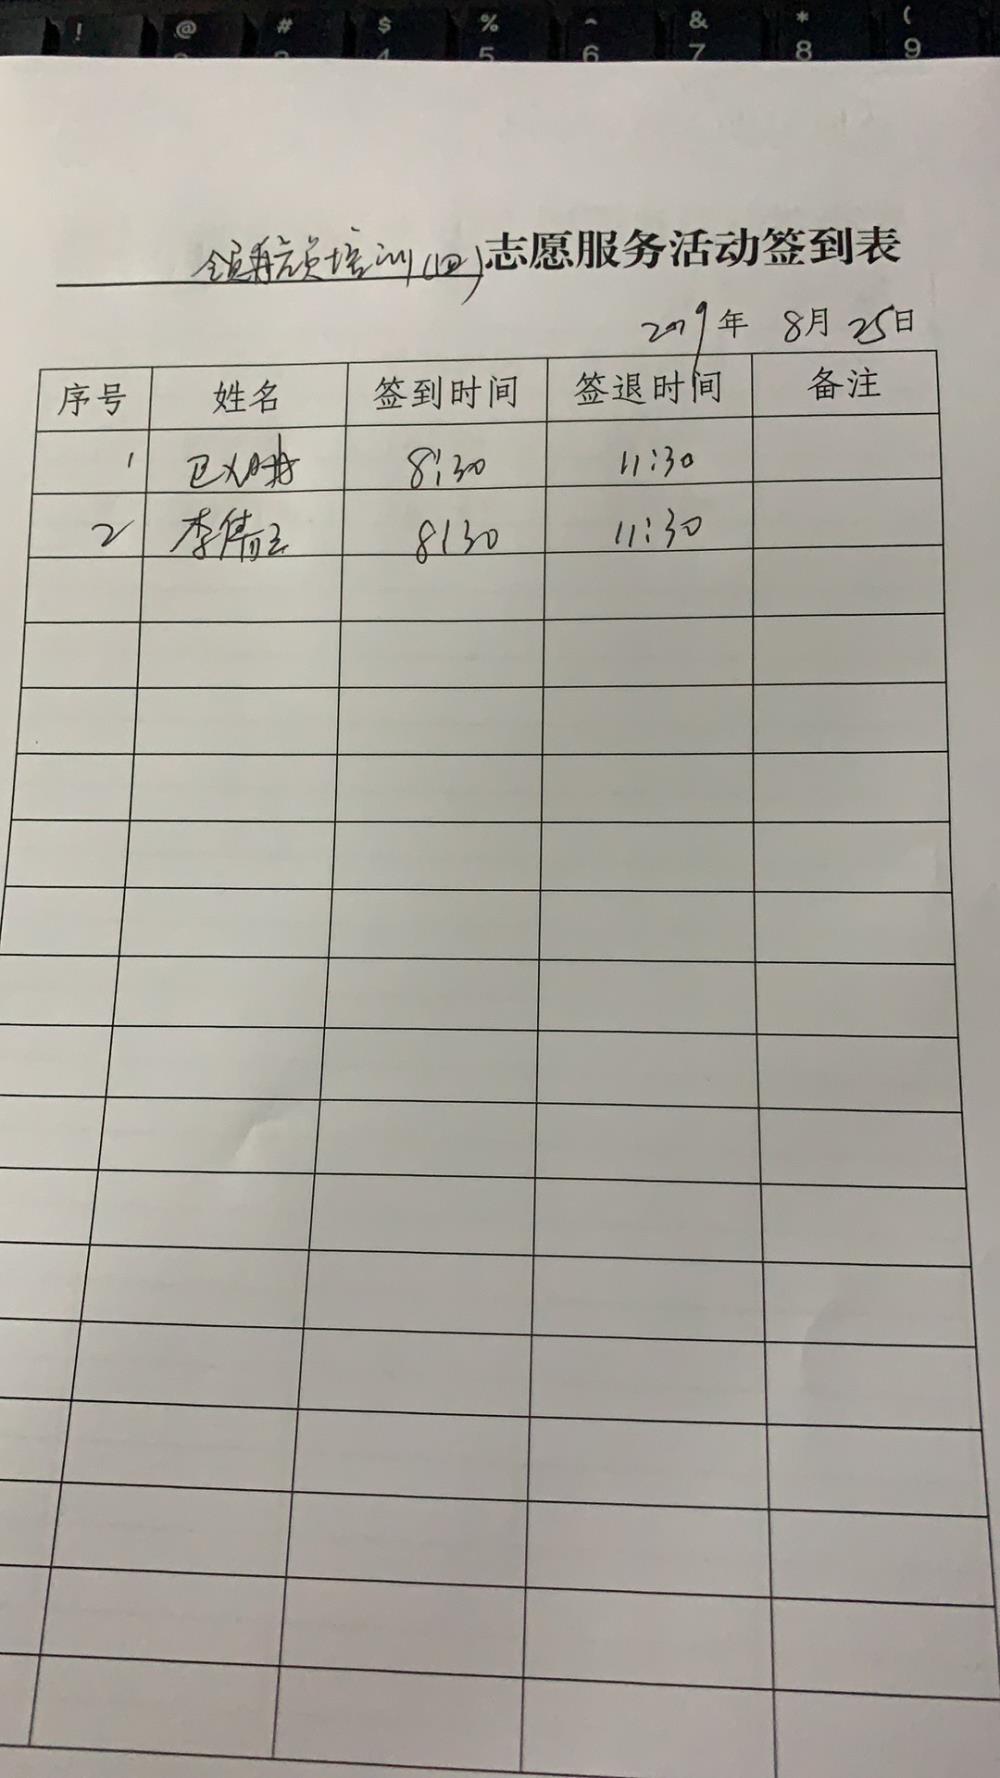 ! @ # $ % ^ & * (
5 6 7 8 9
领航员培训(四)志愿服务活动签到表
2019年 8月25日
序号 姓名 签到时间 签退时间 备注
1 8:30 11:30
2 李倩 8:30 11:30